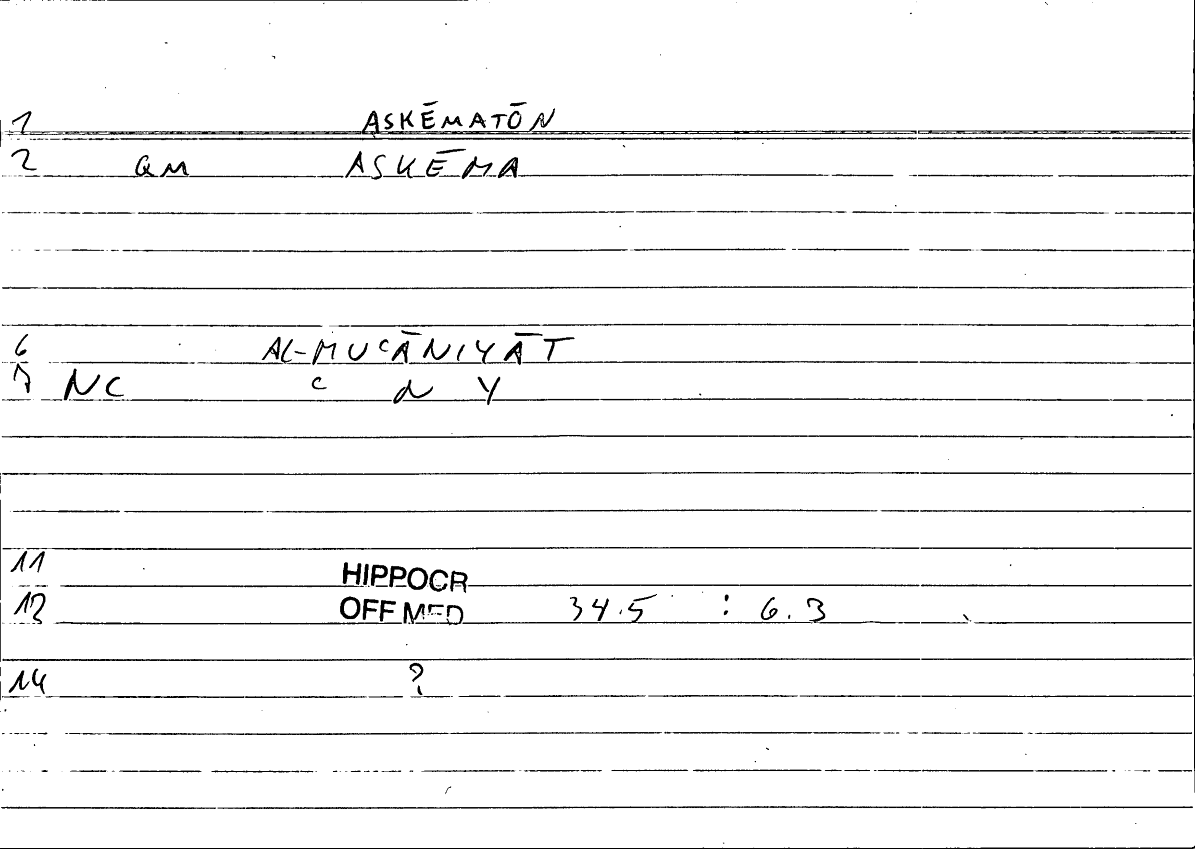 1 ASKĒMATŌN
2 QM ASKĒMA
6 AL-MUᶜĀNIYĀT
7 NC ᶜ N Y
11 HIPPOCR
12 OFF MED 34.5 : 6.3
14 ?